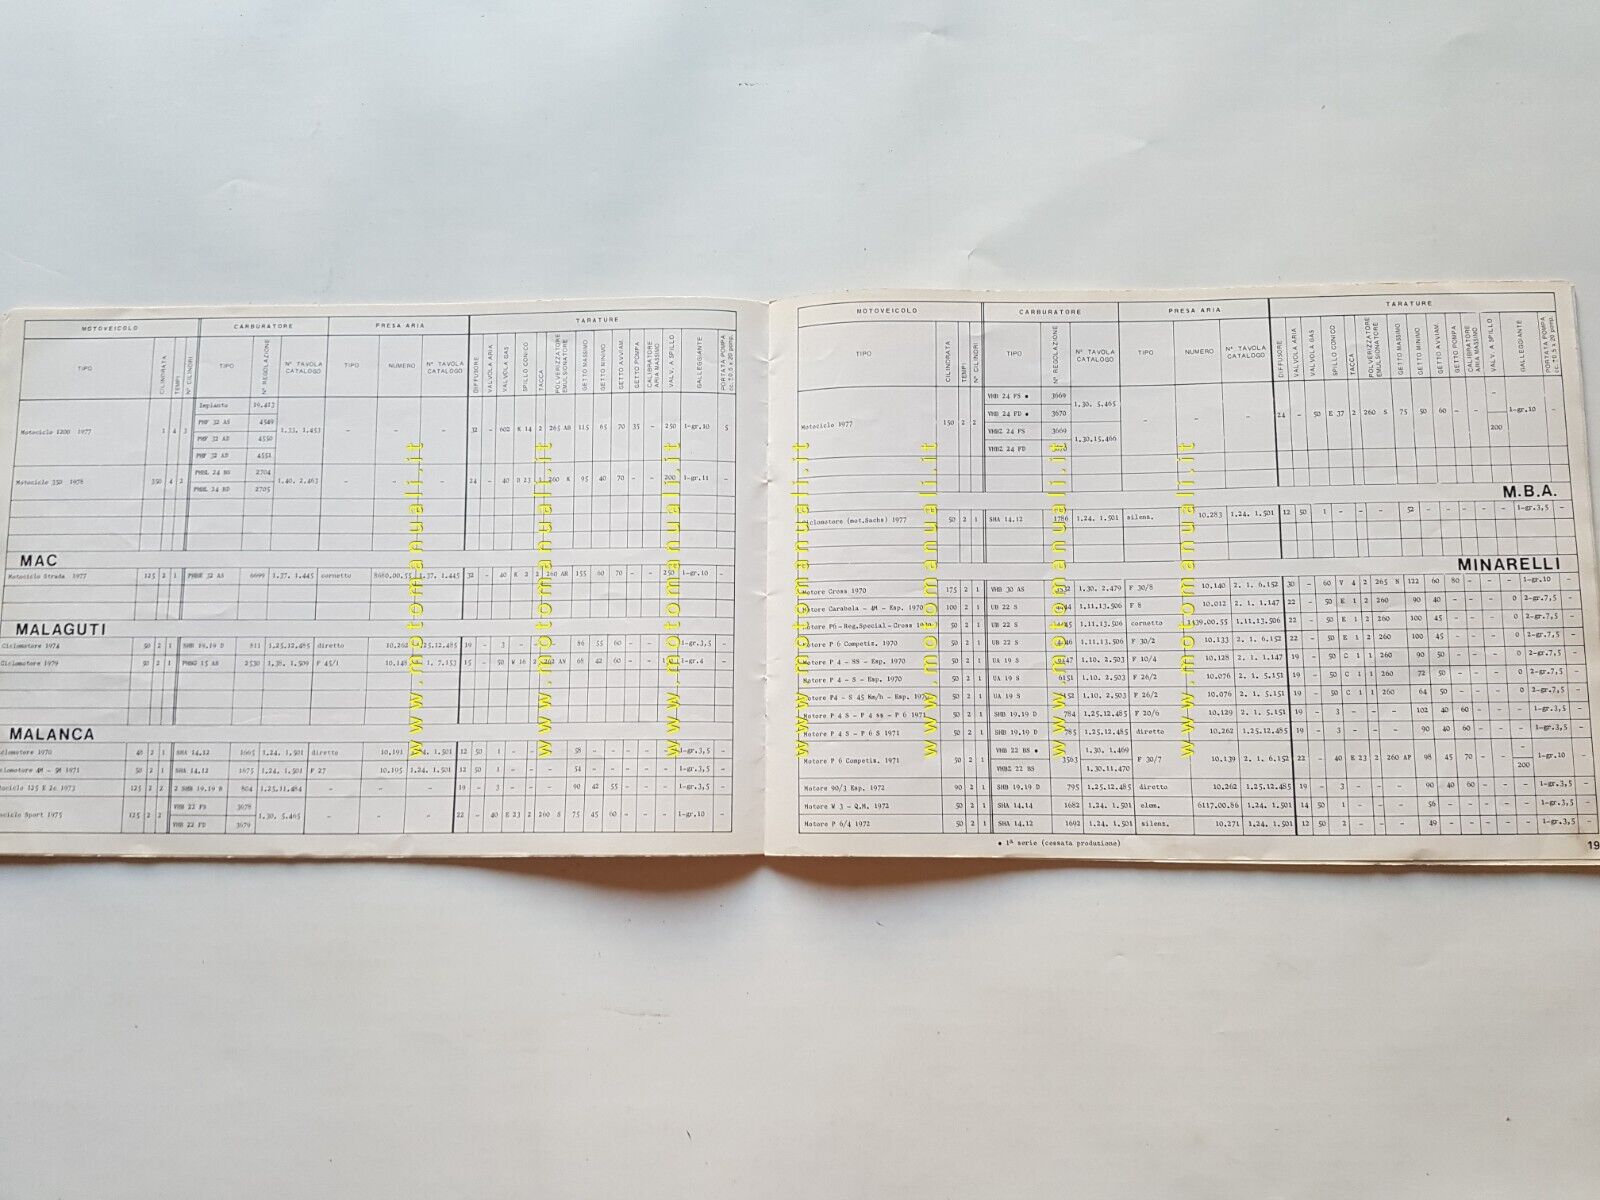 MOTOVEICOLO CARBURATORE PRESA ARIA TARATURE
TIPO CILINDRATA TEMPI N° CILINDRI TIPO N° REGOLAZIONE N° TAVOLA CATALOGO TIPO NUMERO N° TAVOLA CATALOGO DIFFUSORE VALVOLA ARIA VALVOLA GAS SPILLO CONICO TACCA POLVERIZZATORE EMULSIONATORE GETTO MASSIMO GETTO MINIMO GETTO AVVIAM. GETTO POMPA CALIBRATORE ARIA MASSIMO VALV. A SPILLO GALLEGGIANTE PORTATA POMPA cc. ±0,5 x 20 pomp.
Impianto 19.413
PHF 32 AS 4549
Motociclo 1200 1977 1 4 3 1.33. 1.453 - - - 32 - 602 K 14 2 265 AB 115 65 70 35 - 250 1-gr.10 5
PHF 32 AD 4550
PHF 32 AD 4551
PHBL 24 BS 2704
Motociclo 350 1978 350 4 2 1.40. 2.463 - - - 24 - 40 D 23 1 260 K 95 40 70 - - 200 1-gr.11 -
PHBL 24 BD 2705
MAC
Motociclo Strada 1977 125 2 1 PHBE 32 AS 6699 1.37. 1.445 cornetto 8660.00.55 1.37. 1.445 32 - 40 K 2 2 260 AR 155 60 70 - - 250 1-gr.10 -
MALAGUTI
Ciclomotore 1974 50 2 1 SHB 19.19 D 811 1.25.12.485 diretto 10.262 1.25.12.485 19 - 3 - - - 86 55 60 - - - 1-gr.3,5 -
Ciclomotore 1979 50 2 1 PHBG 15 AS 2530 1.38. 1.509 F 45/1 10.148 . 1. 7.153 15 - 50 W 16 2 262 AN 68 42 60 - - 1-gr.4 -
MALANCA
clomotore 1970 48 2 1 SHA 14.12 1665 1.24. 1.501 diretto 10.191 1.24. 1.501 12 50 1 - - - 58 - - - - - 1-gr.3,5 -
clomotore 4M - 5M 1971 50 2 1 SHA 14.12 1675 1.24. 1.501 F 27 10.195 1.24. 1.501 12 50 1 - - - 54 - - - - - 1-gr.3,5 -
ociclo 125 E 2c 1973 125 2 2 2 SHB 19.19 B 804 1.25.11.484 - - - 19 - 3 - - - 90 42 55 - - - 1-gr.3,5 -
VHB 22 FS 3678
ociclo Sport 1975 125 2 2 1.30. 5.465 - - - 22 - 40 E 23 2 260 S 75 45 60 - - - 1-gr.10 -
VHB 22 FD 3679
MOTOVEICOLO CARBURATORE PRESA ARIA TARATURE
TIPO CILINDRATA TEMPI N° CILINDRI TIPO N° REGOLAZIONE N° TAVOLA CATALOGO TIPO NUMERO N° TAVOLA CATALOGO DIFFUSORE VALVOLA ARIA VALVOLA GAS SPILLO CONICO TACCA POLVERIZZATORE EMULSIONATORE GETTO MASSIMO GETTO MINIMO GETTO AVVIAM. GETTO POMPA CALIBRATORE ARIA MASSIMO VALV. A SPILLO GALLEGGIANTE PORTATA POMPA cc. ±0,5 x 20 pomp.
VHB 24 FS • 3669 1.30. 5.465
VHB 24 FD • 3670
Motociclo 1977 150 2 2 - - - 24 - 50 E 37 2 260 S 75 50 60 - - 200 1-gr.10 -
VHBZ 24 FS 3669 1.30.15.466
VHBZ 24 FD 3670
M.B.A.
Ciclomotore (mot.Sachs) 1977 50 2 1 SHA 14.12 1786 1.24. 1.501 silens. 10.283 1.24. 1.501 12 50 1 - - - 52 - - - - - 1-gr.3,5 -
MINARELLI
Motore Cross 1970 175 2 1 VHB 30 AS 1.30. 2.479 F 30/8 10.140 2. 1. 6.152 30 - 60 V 4 2 265 N 122 60 80 - - - 1-gr.10 -
Motore Carabela - 4M - Esp. 1970 100 2 1 UB 22 S 1.11.13.506 F 8 10.012 2. 1. 1.147 22 - 50 E 1 2 260 90 40 - - - 0 2-gr.7,5 -
Motore P6-Reg.Special-Cross 1970 50 2 1 UB 22 S 1.11.13.506 cornetto 1439.00.55 1.11.13.506 22 - 50 E 1 2 260 100 45 - - - 0 2-gr.7,5 -
Motore P 6 Competiz. 1970 50 2 1 UB 22 S 1.11.13.506 F 30/2 10.133 2. 1. 6.152 22 - 50 E 1 2 260 100 45 - - - 0 2-gr.7,5 -
Motore P 4 - SS - Esp. 1970 50 2 1 UA 19 S 1.10. 2.503 F 10/4 10.128 2. 1. 1.147 19 - 50 C 1 1 260 90 50 - - - 0 2-gr.7,5 -
Motore P 4 - S - Esp. 1970 50 2 1 UA 19 S 6151 1.10. 2.503 F 26/2 10.076 2. 1. 5.151 19 - 50 C 1 1 260 72 50 - - - 0 2-gr.7,5 -
Motore P4 - S 45 Km/h - Esp. 1970 50 2 1 UA 19 S 6152 1.10. 2.503 F 26/2 10.076 2. 1. 5.151 19 - 50 C 1 1 260 64 50 - - - 0 2-gr.7,5 -
Motore P 4 S - P 4 ss - P 6 1971 50 2 1 SHB 19.19 D 784 1.25.12.485 F 20/6 10.129 2. 1. 5.151 19 - 3 - - - 102 40 60 - - - 1-gr.3,5 -
Motore P 4 S - P 6 S 1971 50 2 1 SHB 19.19 D 785 1.25.12.485 diretto 10.262 1.25.12.485 19 - 3 - - - 90 40 60 - - - 1-gr.3,5 -
VHB 22 BS • 1.30. 1.469
Motore P 6 Competiz. 1971 50 2 1 3563 F 30/7 10.139 2. 1. 6.152 22 - 40 E 23 2 260 AP 98 45 70 - - 200 1-gr.10 -
VHBZ 22 BS 1.30.11.470
Motore 90/3 Esp. 1972 90 2 1 SHB 19.19 D 795 1.25.12.485 diretto 10.262 1.25.12.485 19 - 3 - - - 90 40 60 - - - 1-gr.3,5 -
Motore W 3 - Q.M. 1972 50 2 1 SHA 14.14 1682 1.24. 1.501 elem. 6117.00.86 1.24. 1.501 14 50 1 - - - 56 - - - - - 1-gr.3,5 -
Motore P 6/4 1972 50 2 1 SHA 14.12 1692 1.24. 1.501 silens. 10.271 1.24. 1.501 12 50 2 - - - 49 - - - - - 1-gr.3,5 -
• 1ª serie (cessata produzione)
19
www.motomanuali.it
www.motomanuali.it
www.motomanuali.it
www.motomanuali.it
www.motomanuali.it
www.motomanuali.it
www.motomanuali.it